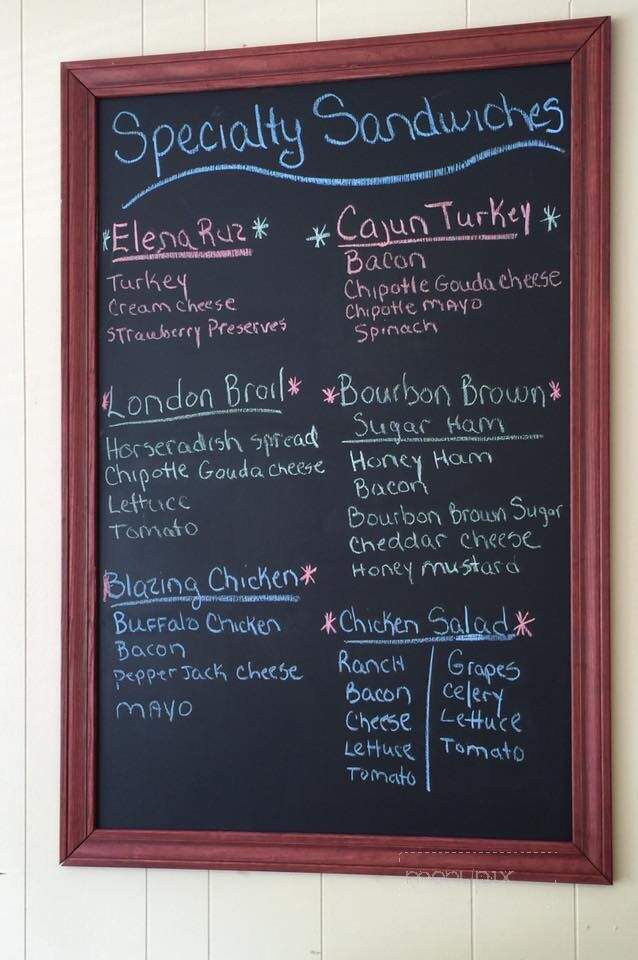 Specialty Sandwiches
*Elena Ruz*
Turkey
Cream cheese
Strawberry Preserves
*Cajun Turkey*
Bacon
Chipotle Gouda cheese
Chipotle mayo
Spinach
*London Broil*
Horseradish spread
Chipotle Gouda cheese
Lettuce
Tomato
*Bourbon Brown*
Sugar Ham
Honey Ham
Bacon
Bourbon Brown Sugar
Cheddar cheese
Honey mustard
Blazing Chicken*
Buffalo Chicken
Bacon
Pepper Jack cheese
mayo
*Chicken Salad*
Ranch
Bacon
Cheese
Lettuce
Tomato
Grapes
celery
Lettuce
Tomato
menupix